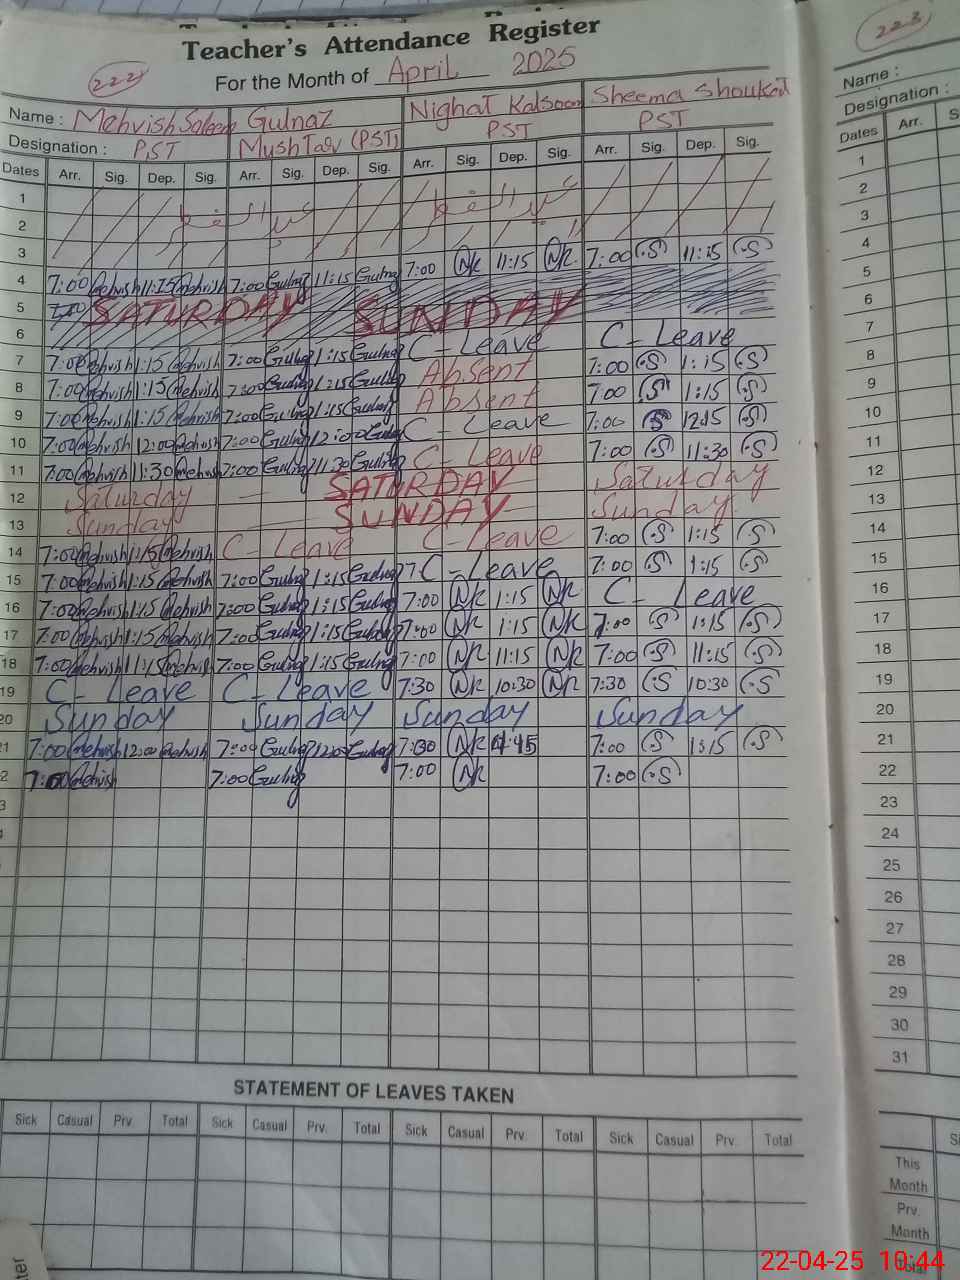 Teacher's Attendance Register
222
For the Month of April 2025
Name : Mehvish Saleem Gulnaz Nighat Kalsoom Sheema Shoukat
Designation : PST Mushtaq (PST) PST PST
Dates Arr. Sig. Dep. Sig. Arr. Sig. Dep. Sig. Arr. Sig. Dep. Sig. Arr. Sig. Dep. Sig.
1
2 عید الفطر عید الفطر
3
4 7:00 Mehvish 11:15 Mehvish 7:00 Gulnaz 11:15 Gulnaz 7:00 NK 11:15 NK 7:00 S 11:15 S
5 7:00 SATURDAY SUNDAY
6
7 7:00 Mehvish 1:15 Mehvish 7:00 Gulnaz 1:15 Gulnaz C-Leave C-Leave
8 7:00 Mehvish 1:15 Mehvish 7:00 Gulnaz 1:15 Gulnaz Absent 7:00 S 1:15 S
9 7:00 Mehvish 1:15 Mehvish 7:00 Gulnaz 1:15 Gulnaz Absent 7:00 S 1:15 S
10 7:00 Mehvish 12:00 Mehvish 7:00 Gulnaz 12:00 Gulnaz C-Leave 7:00 S 12:15 S
11 7:00 Mehvish 11:30 Mehvish 7:00 Gulnaz 11:30 Gulnaz C-Leave 7:00 S 11:30 S
12 Saturday — SATURDAY Saturday
13 Sunday — SUNDAY Sunday
14 7:00 Mehvish 1:15 Mehvish C-Leave C-Leave 7:00 S 1:15 S
15 7:00 Mehvish 1:15 Mehvish 7:00 Gulnaz 1:15 Gulnaz 7 C-Leave 7:00 S 1:15 S
16 7:00 Mehvish 1:15 Mehvish 7:00 Gulnaz 1:15 Gulnaz 7:00 NK 1:15 NK C-Leave
17 7:00 Mehvish 1:15 Mehvish 7:00 Gulnaz 1:15 Gulnaz 7:00 NK 1:15 NK 7:00 S 1:15 S
18 7:00 Mehvish 11:15 Mehvish 7:00 Gulnaz 1:15 Gulnaz 7:00 NK 11:15 NK 7:00 S 11:15 S
19 C-Leave C-Leave 7:30 NK 10:30 NK 7:30 S 10:30 S
20 Sunday Sunday Sunday Sunday
21 7:00 Mehvish 12:00 Mehvish 7:00 Gulnaz 12:00 Gulnaz 7:30 NK 7:00 S 1:15 S
22 7:00 Mehvish 7:00 Gulnaz 7:00 NK 7:00 S
3
4
STATEMENT OF LEAVES TAKEN
Sick Casual Prv. Total Sick Casual Prv. Total Sick Casual Prv. Total Sick Casual Prv. Total
223
Name :
Designation :
Dates Arr. S
1
2
3
4
5
6
7
8
9
10
11
12
13
14
15
16
17
18
19
20
21
22
23
24
25
26
27
28
29
30
31
This
Month
Prv.
Month
Total
22-04-25 10:44